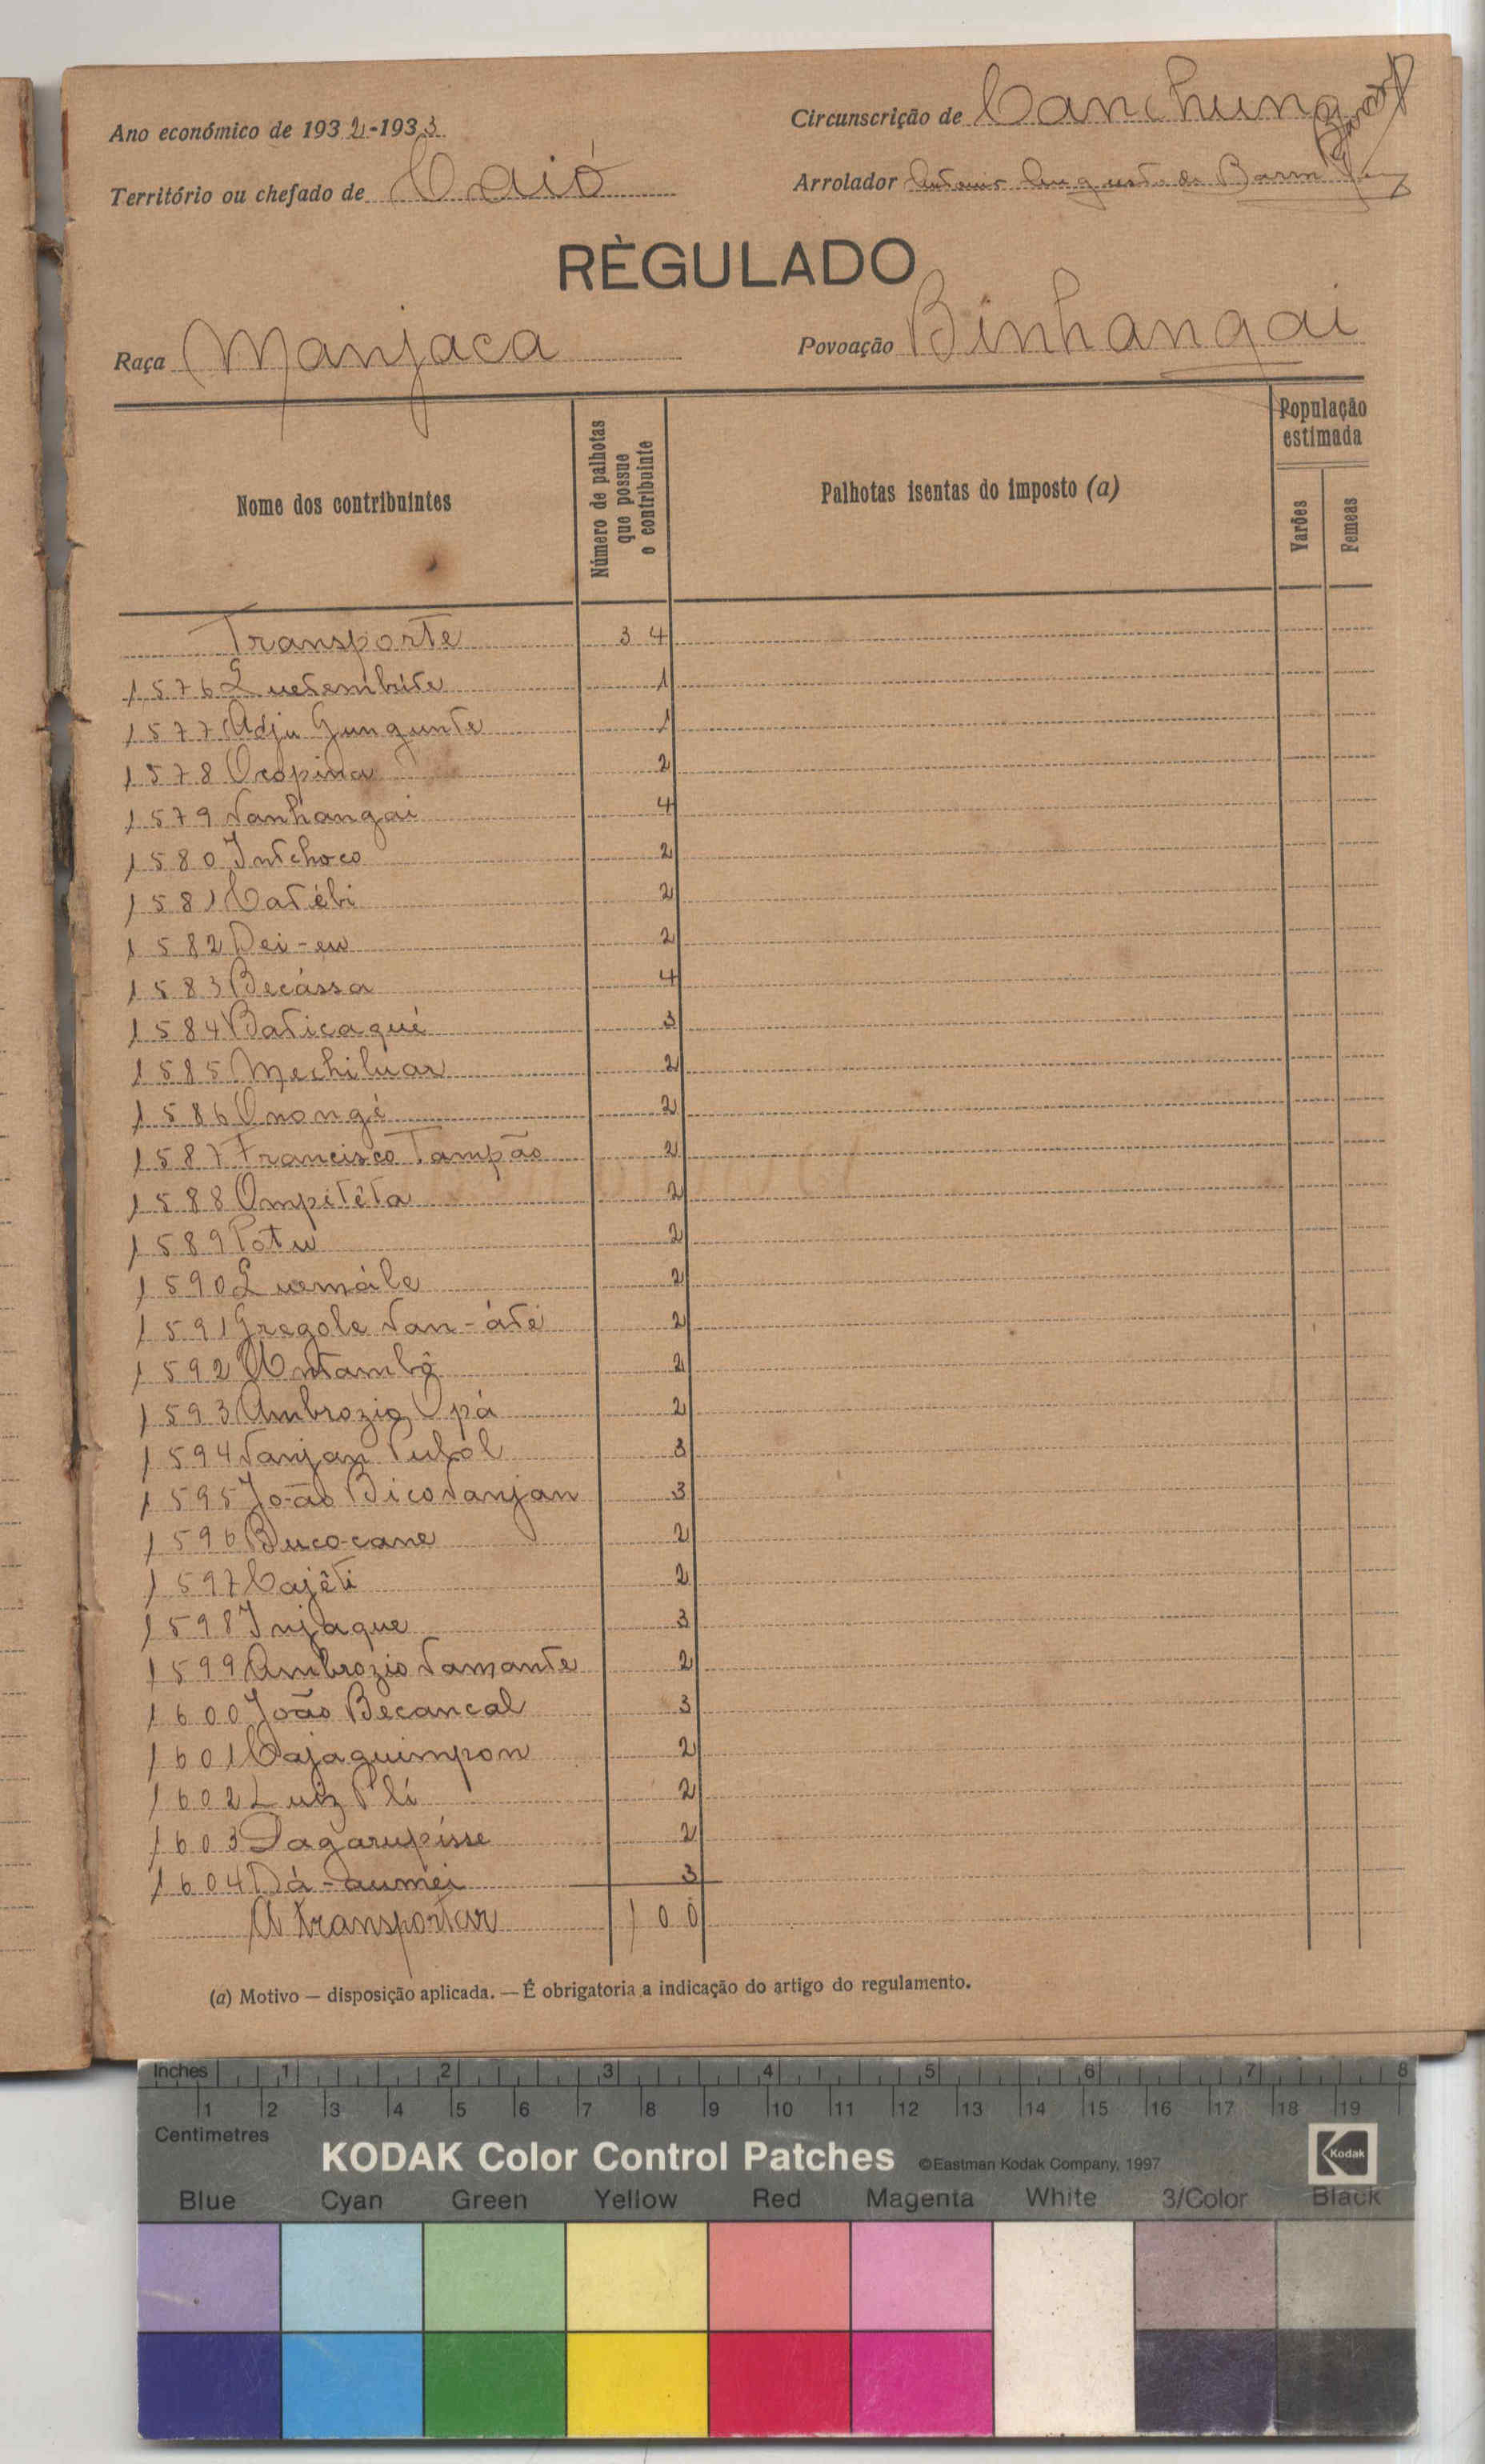 Ano económico de 1932-1933
Circunscrição de Canchungo
Território ou chefado de Caió
Arrolador Antonio Augusto de Barros
RÈGULADO
Raça Manjaca
Povoação Binhangai
Nome dos contribuintes
Número de palhotas que possue o contribuinte
Palhotas isentas do imposto (a)
População estimada
Varões
Femeas
Transporte 34
1576 Quetembúte 1
1577 Adju Gungunte 1
1578 Oropina 2
1579 Nanhangai 4
1580 Intchoco 2
1581 Catébi 2
1582 Dei-eu 2
1583 Becássa 4
1584 Baticaqué 3
1585 Mechiluar 2
1586 Onongé 2
1587 Francisco Tampão 2
1588 Ompitêta 2
1589 Potu 2
1590 Quemále 2
1591 Gregole Nan-áte 2
1592 Untambô 2
1593 Ambrozio Opá 2
1594 Nanjan Pubol 3
1595 João Bico Nanjan 3
1596 Buco-cane 2
1597 Cajêti 2
1598 Injaque 3
1599 Ambrozio Namante 2
1600 João Becancal 3
1601 Cajaquimpon 2
1602 Luiz Pli 2
1603 Dagarupisse 2
1604 Dá-aumei 3
A transportar 100
(a) Motivo — disposição aplicada. — É obrigatoria a indicação do artigo do regulamento.
Inches 1 2 3 4 5 6 7 8
1 2 3 4 5 6 7 8 9 10 11 12 13 14 15 16 17 18 19
Centimetres
KODAK Color Control Patches ©Eastman Kodak Company, 1997 Kodak
Blue Cyan Green Yellow Red Magenta White 3/Color Black